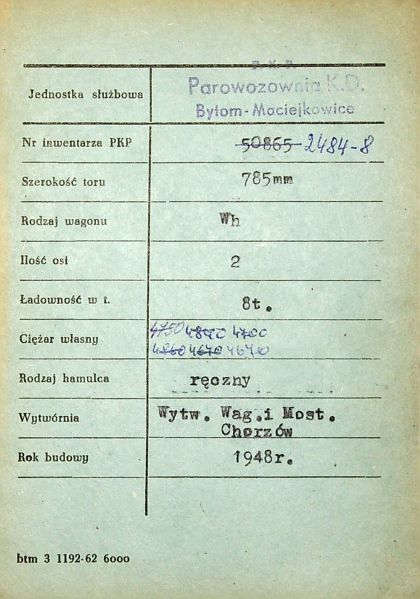 P. K. P.
Jednostka służbowa Parowozownia K.D.
Bytom-Maciejkowice
Nr inwentarza PKP 50865 2484-8
Szerokość toru 785mm
Rodzaj wagonu Wh
Ilość osi 2
Ładowność w t. 8t.
Ciężar własny 4750 4840 4700
4860 4670 4670
Rodzaj hamulca ręczny
Wytwórnia Wytw. Wag.i Most.
Chorzów
Rok budowy 1948r.
btm 3 1192-62 6000